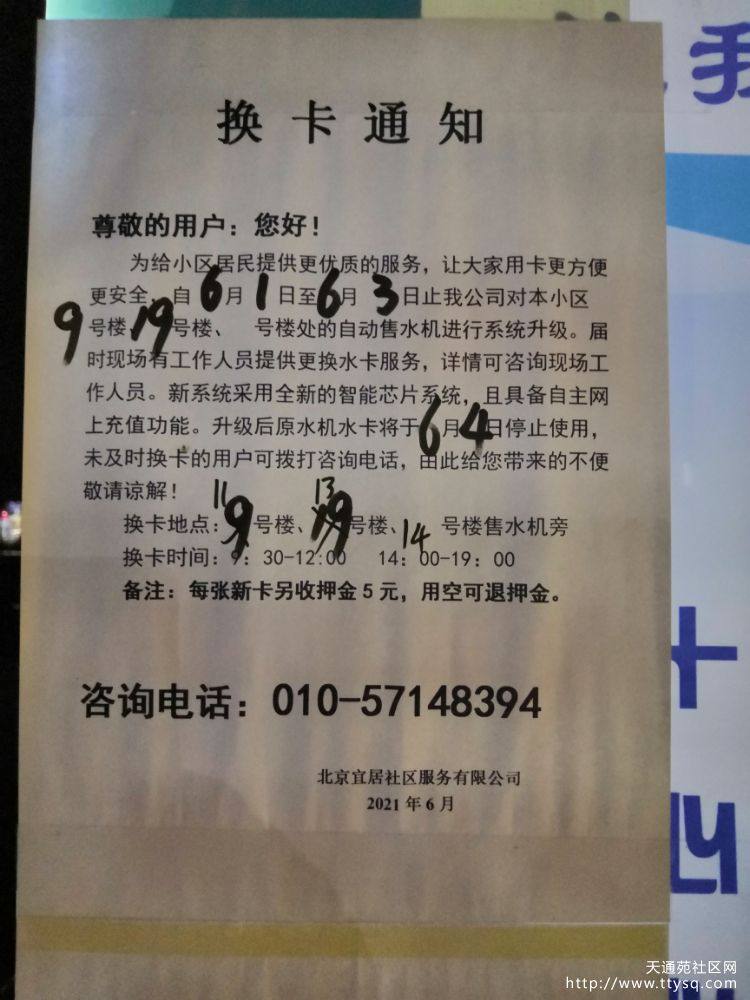 换卡通知
尊敬的用户：您好！
为给小区居民提供更优质的服务，让大家用卡更方便
更安全，自6月1日至6月3日止我公司对本小区
9号楼、19号楼、 号楼处的自动售水机进行系统升级。届
时现场有工作人员提供更换水卡服务，详情可咨询现场工
作人员。新系统采用全新的智能芯片系统，且具备自主网
上充值功能。升级后原水机水卡将于6月4日停止使用，
未及时换卡的用户可拨打咨询电话，由此给您带来的不便
敬请谅解！
11 13
换卡地点：9号楼、19号楼、14号楼售水机旁
换卡时间：9：30-12:00 14：00-19：00
备注：每张新卡另收押金5元，用空可退押金。
咨询电话：010-57148394
北京宜居社区服务有限公司
2021年6月
我
天通苑社区网
http://www.ttysq.com